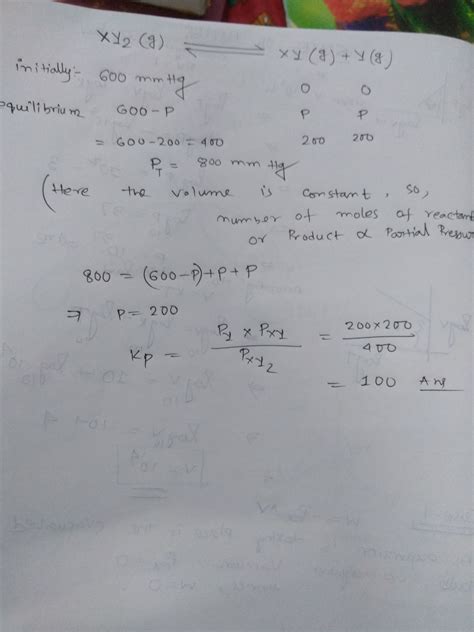 XY2 (g) ⇌ XY (g) + Y (g)
initially:- 600 mm Hg 0 0
equilibrium 600-P P P
= 600-200 = 400 200 200
PT = 800 mm Hg
(Here the volume is constant, so,
number of moles of reactant
or Product α Partial Pressu
800 = (600-P)+P+P
⇒ P = 200
Kp = Py × Pxy / Pxy2 = 200×200 / 400
= 100 Ans